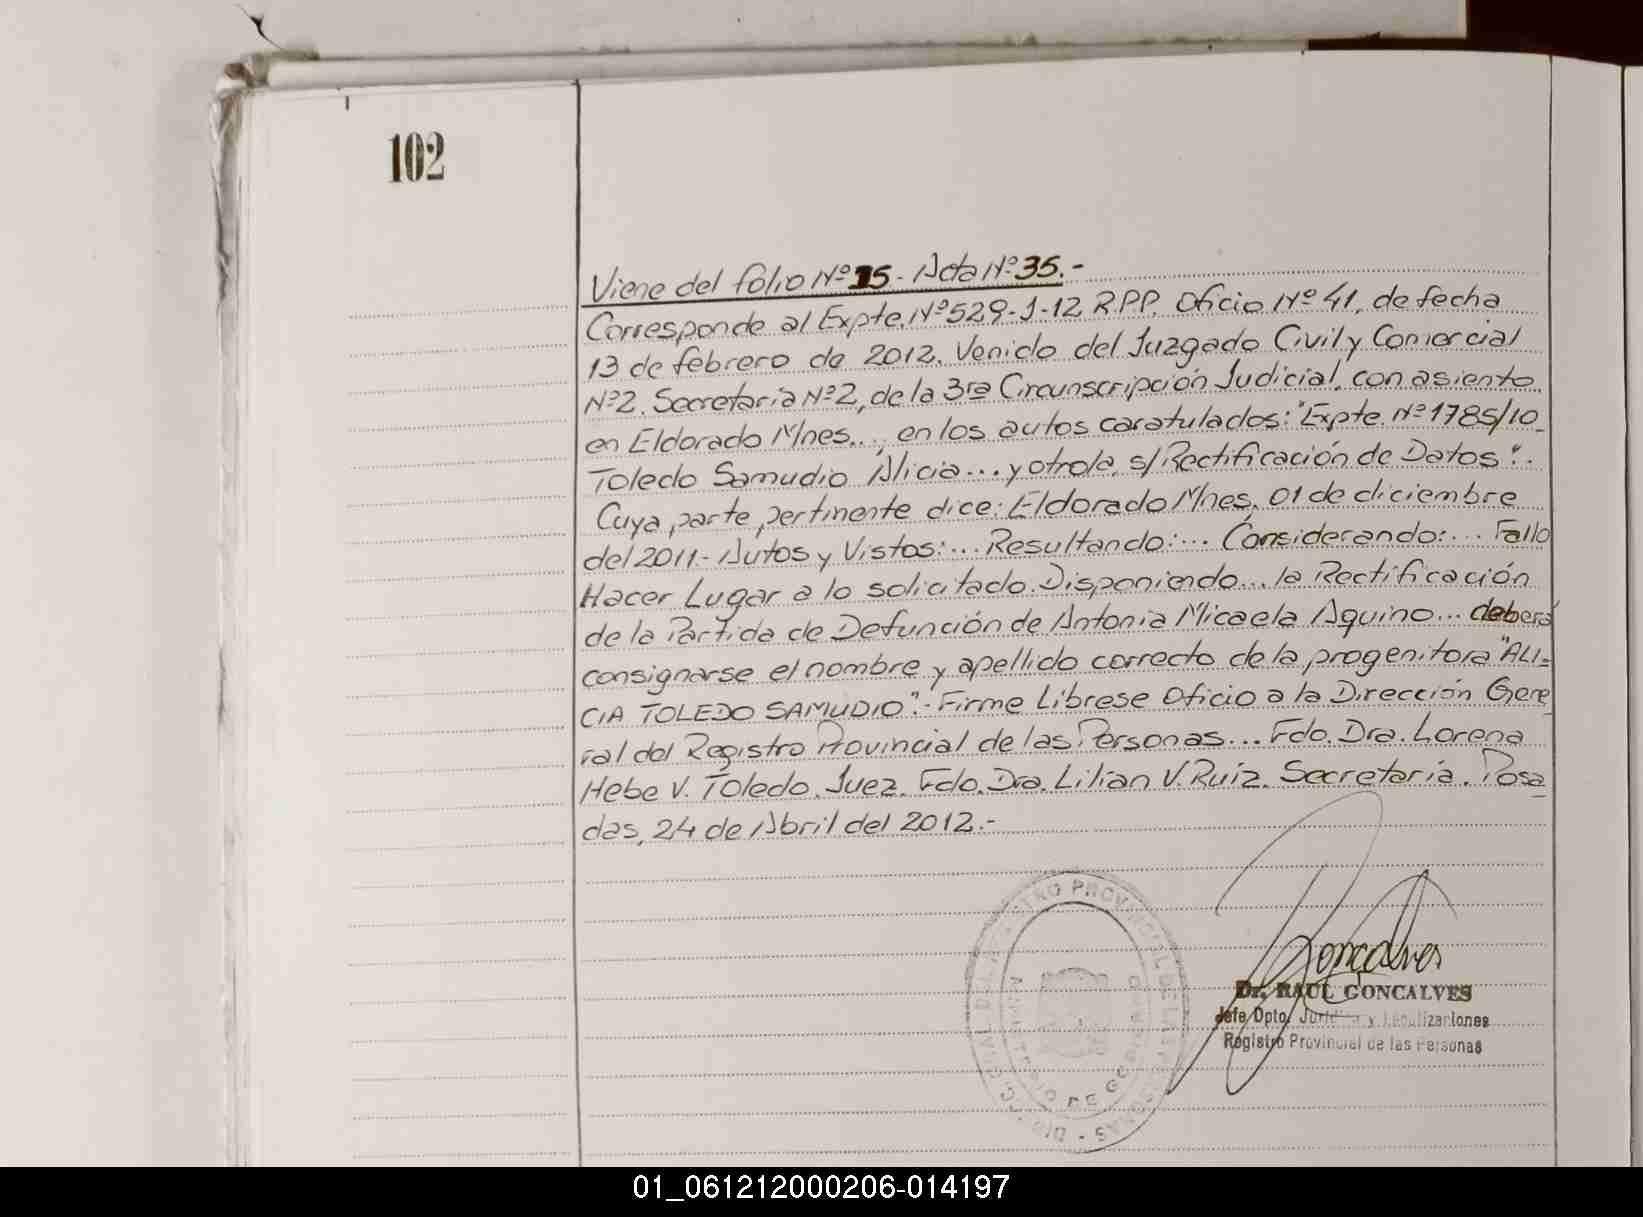 102
Viene del folio Nº 35 - Acta Nº 35.-
Corresponde al Expte. Nº 529-J-12 R.P.P. Oficio Nº 41, de fecha
13 de febrero de 2012. Venido del Juzgado Civil y Comercial
Nº2. Secretaría Nº2, de la 3ra Circunscripción Judicial, con asiento
en Eldorado Mnes..., en los autos caratulados: "Expte. Nº 1785/10
Toledo Samudio Alicia... y otro/a, s/Rectificación de Datos".
Cuya parte pertinente dice: Eldorado Mnes, 01 de diciembre
del 2011.- Autos y Vistos:... Resultando:... Considerando:... Fallo
Hacer Lugar a lo solicitado. Disponiendo... la Rectificación
de la Partida de Defunción de Antonia Micaela Aquino... deberá
consignarse el nombre y apellido correcto de la progenitora "ALI-
CIA TOLEDO SAMUDIO".- Firme Líbrese Oficio a la Dirección Gene
ral del Registro Provincial de las Personas... Fdo. Dra. Lorena
Hebe V. Toledo. Juez. Fdo. Dra. Lilian V. Ruíz. Secretaría. Posa
das, 24 de Abril del 2012.-
Goncalves
Dr. RAUL GONCALVES
Jefe Dpto. Jurídica y Legalizaciones
Registro Provincial de las Personas
01_061212000206-014197